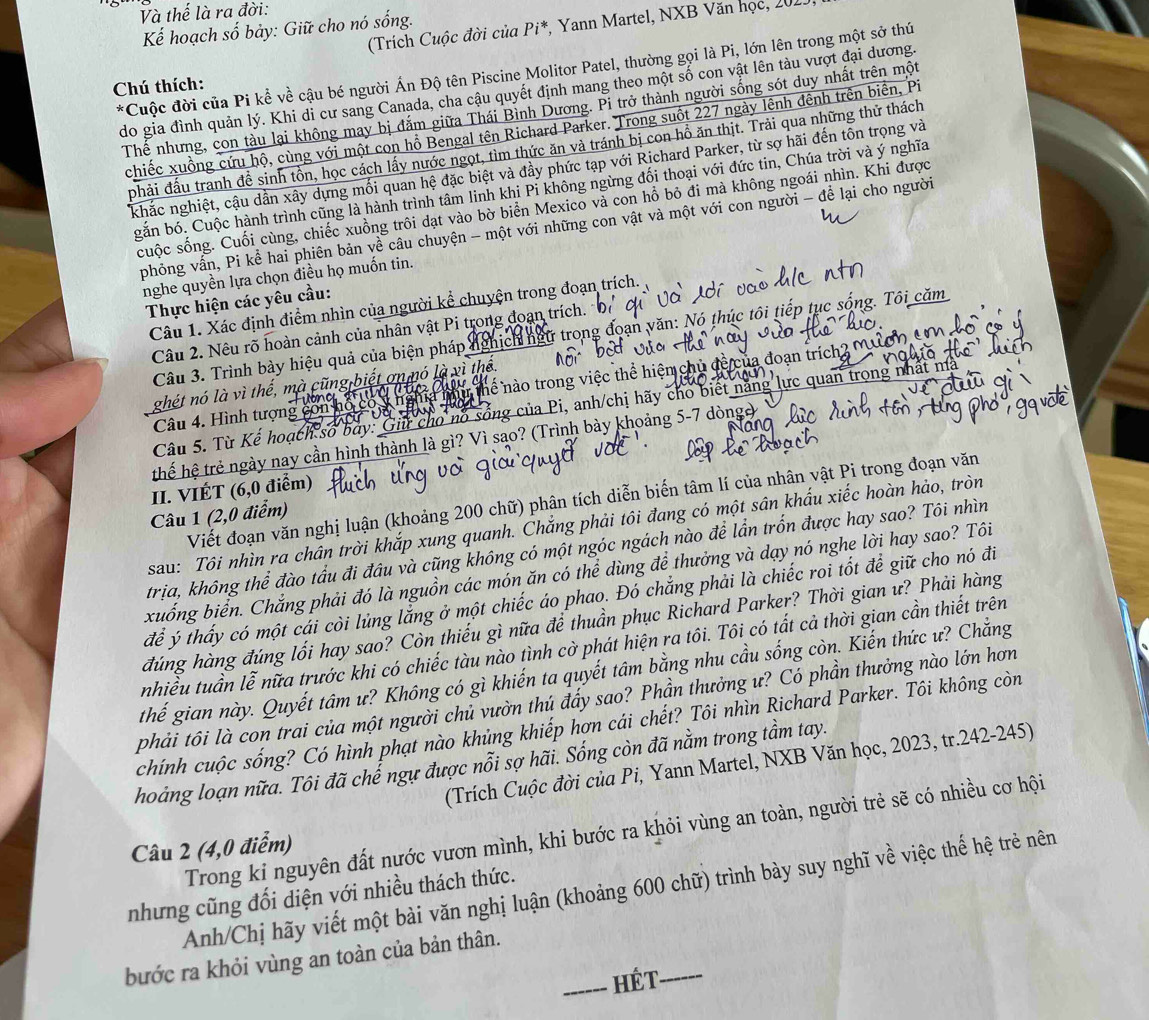 Và thế là ra đời:
Kế hoạch số bảy: Giữ cho nó sống.
(Trích Cuộc đời của Pi*, Yann Martel, NXB Văn học,
Chú thích:
*Cuộc đời của Pi kể về cậu bé người Ấn Độ tên Piscine Molitor Patel, thường gọi là Pi, lớn lên trong một sở thú
do gia đình quản lý. Khi di cư sang Canada, cha cậu quyết định mang theo một số con vật lên tàu vượt đại dương.
Thế nhưng, con tàu lại không may bị đắm giữa Thái Bình Dương. Pi trở thành người sống sót duy nhất trên một
chiếc xuồng cứu hộ, cùng với một con hổ Bengal tên Richard Parker. Trong suốt 227 ngày lênh đênh trên biển, Pi
phải đấu tranh để sinh tồn, học cách lấy nước ngọt, tìm thức ăn và tránh bị con hổ ăn thịt. Trải qua những thử thách
khắc nghiệt, cậu dần xây dựng mối quan hệ đặc biệt và đầy phức tạp với Richard Parker, từ sợ hãi đến tôn trọng và
gắn bó. Cuộc hành trình cũng là hành trình tâm linh khi Pi không ngừng đối thoại với đức tin, Chúa trời và ý nghĩa
cuộc sống. Cuối cùng, chiếc xuồng trôi dạt vào bờ biển Mexico và con hổ bỏ đi mà không ngoái nhìn. Khi được
phỏng vấn, Pi kể hai phiên bản về câu chuyện – một với những con vật và một với con người – để lại cho người
nghe quyền lựa chọn điều họ muốn tin.
Thực hiện các yêu cầu:
Câu 1. Xác định điểm nhìn của người kể chuyện trong đoạn trích.
Câu 2. Nêu rõ hoàn cảnh của nhân vật Pi trong đoạn trích. bị gì và rơi vào h/c ntn
Câu 3. Trình bày hiệu quả của biện pháp nghịch ngữ trong đoạn văn: Nó thúc tôi tiếp tục sống. Tôi căm
ghét nó là vì thế, mà cũng biết ơn nó là vì thế.
Câu 4. Hình tượng con hổ có ý nghĩa như thế nào trong việc thể hiện chủ đề của đoạn trích?
Câu 5. Từ Kế hoạch số bảy: Giữ cho nó sống của Pi, anh/chị hãy cho biết năng lực quan trọng nhất mà
thế hệ trẻ ngày nay cần hình thành là gì? Vì sao? (Trình bày khoảng 5-7 dòng)
thích ứng và giải quyết vđề
lập kế hoạch
II. VIẾT (6,0 điểm)
Câu 1 (2,0 điểm)
Viết đoạn văn nghị luận (khoảng 200 chữ) phân tích diễn biến tâm lí của nhân vật Pi trong đoạn văn
sau: Tôi nhìn ra chân trời khắp xung quanh. Chẳng phải tôi đang có một sân khấu xiếc hoàn hảo, tròn
trịa, không thể đào tẩu đi đâu và cũng không có một ngóc ngách nào để lẩn trốn được hay sao? Tôi nhìn
xuống biển. Chẳng phải đó là nguồn các món ăn có thể dùng để thưởng và dạy nó nghe lời hay sao? Tôi
để ý thấy có một cái còi lủng lẳng ở một chiếc áo phao. Đó chẳng phải là chiếc roi tốt để giữ cho nó đi
đúng hàng đúng lối hay sao? Còn thiếu gì nữa để thuần phục Richard Parker? Thời gian ư? Phải hàng
nhiều tuần lễ nữa trước khi có chiếc tàu nào tình cờ phát hiện ra tôi. Tôi có tất cả thời gian cần thiết trên
thế gian này. Quyết tâm ư? Không có gì khiến ta quyết tâm bằng nhu cầu sống còn. Kiến thức ư? Chẳng
phải tôi là con trai của một người chủ vườn thú đấy sao? Phần thưởng ư? Có phần thưởng nào lớn hơn
chính cuộc sống? Có hình phạt nào khủng khiếp hơn cái chết? Tôi nhìn Richard Parker. Tôi không còn
hoảng loạn nữa. Tôi đã chế ngự được nỗi sợ hãi. Sống còn đã nằm trong tầm tay.
(Trích Cuộc đời của Pi, Yann Martel, NXB Văn học, 2023, tr.242-245)
Câu 2 (4,0 điểm)
Trong kỉ nguyên đất nước vươn mình, khi bước ra khỏi vùng an toàn, người trẻ sẽ có nhiều cơ hội
nhưng cũng đối diện với nhiều thách thức.
Anh/Chị hãy viết một bài văn nghị luận (khoảng 600 chữ) trình bày suy nghĩ về việc thế hệ trẻ nên
bước ra khỏi vùng an toàn của bản thân.
------ HẾT------